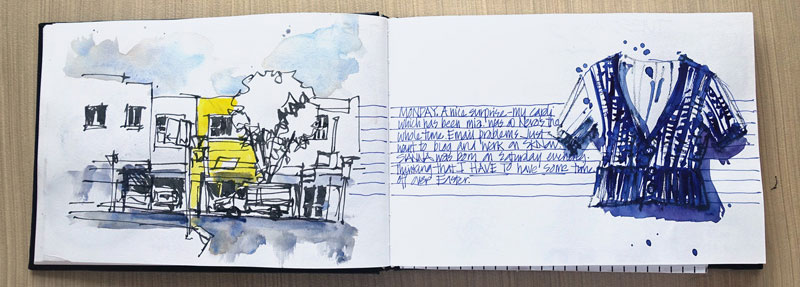 MONDAY. A nice surprise - my cardi
which has been mia was at Nero's the
whole time. Email problems. Just
want to blog and work on
was born on Saturday evening.
Thinking that I HAVE to have some time
off over Easter.